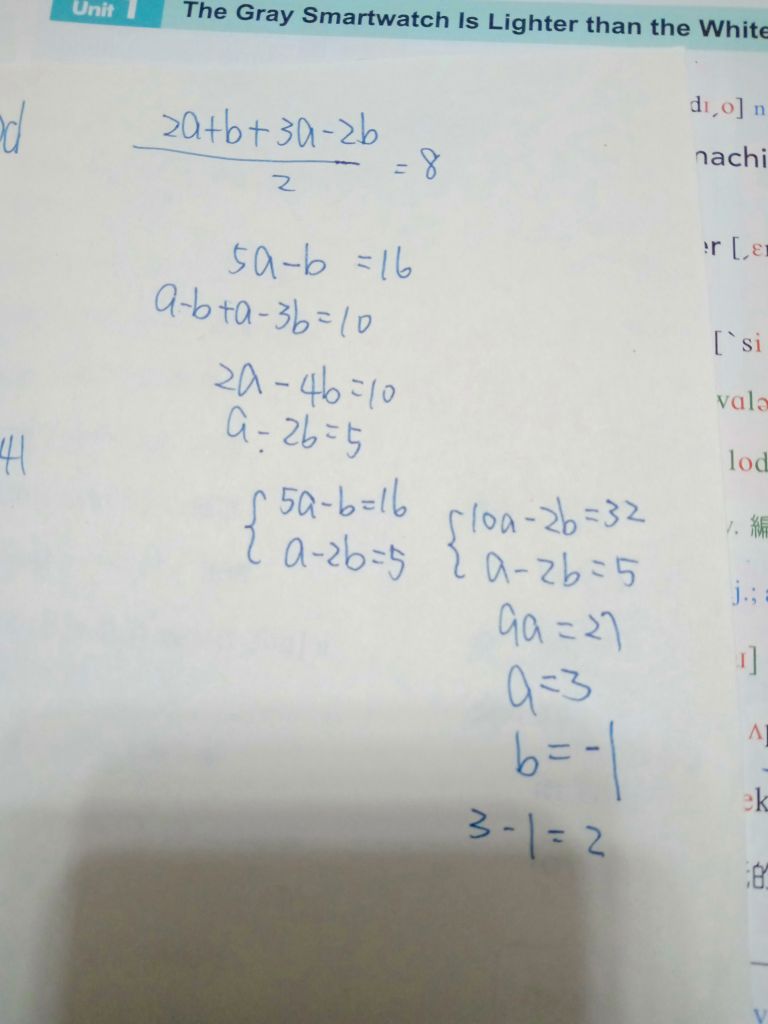 Unit 1 The Gray Smartwatch Is Lighter than the White
2a+b+3a-2b
2
=8
5a-b =16
a-b+a-3b=10
2a-4b=10
a-2b=5
{ 5a-b=16
a-2b=5
{ 10a-2b=32
a-2b=5
9a=27
a=3
b=-1
3-1=2
dɪ͵o] n
machi
er [͵ɛ
[ˋsi
vɑlə
lod
v. 編
j.;
ɪ]
ek
的